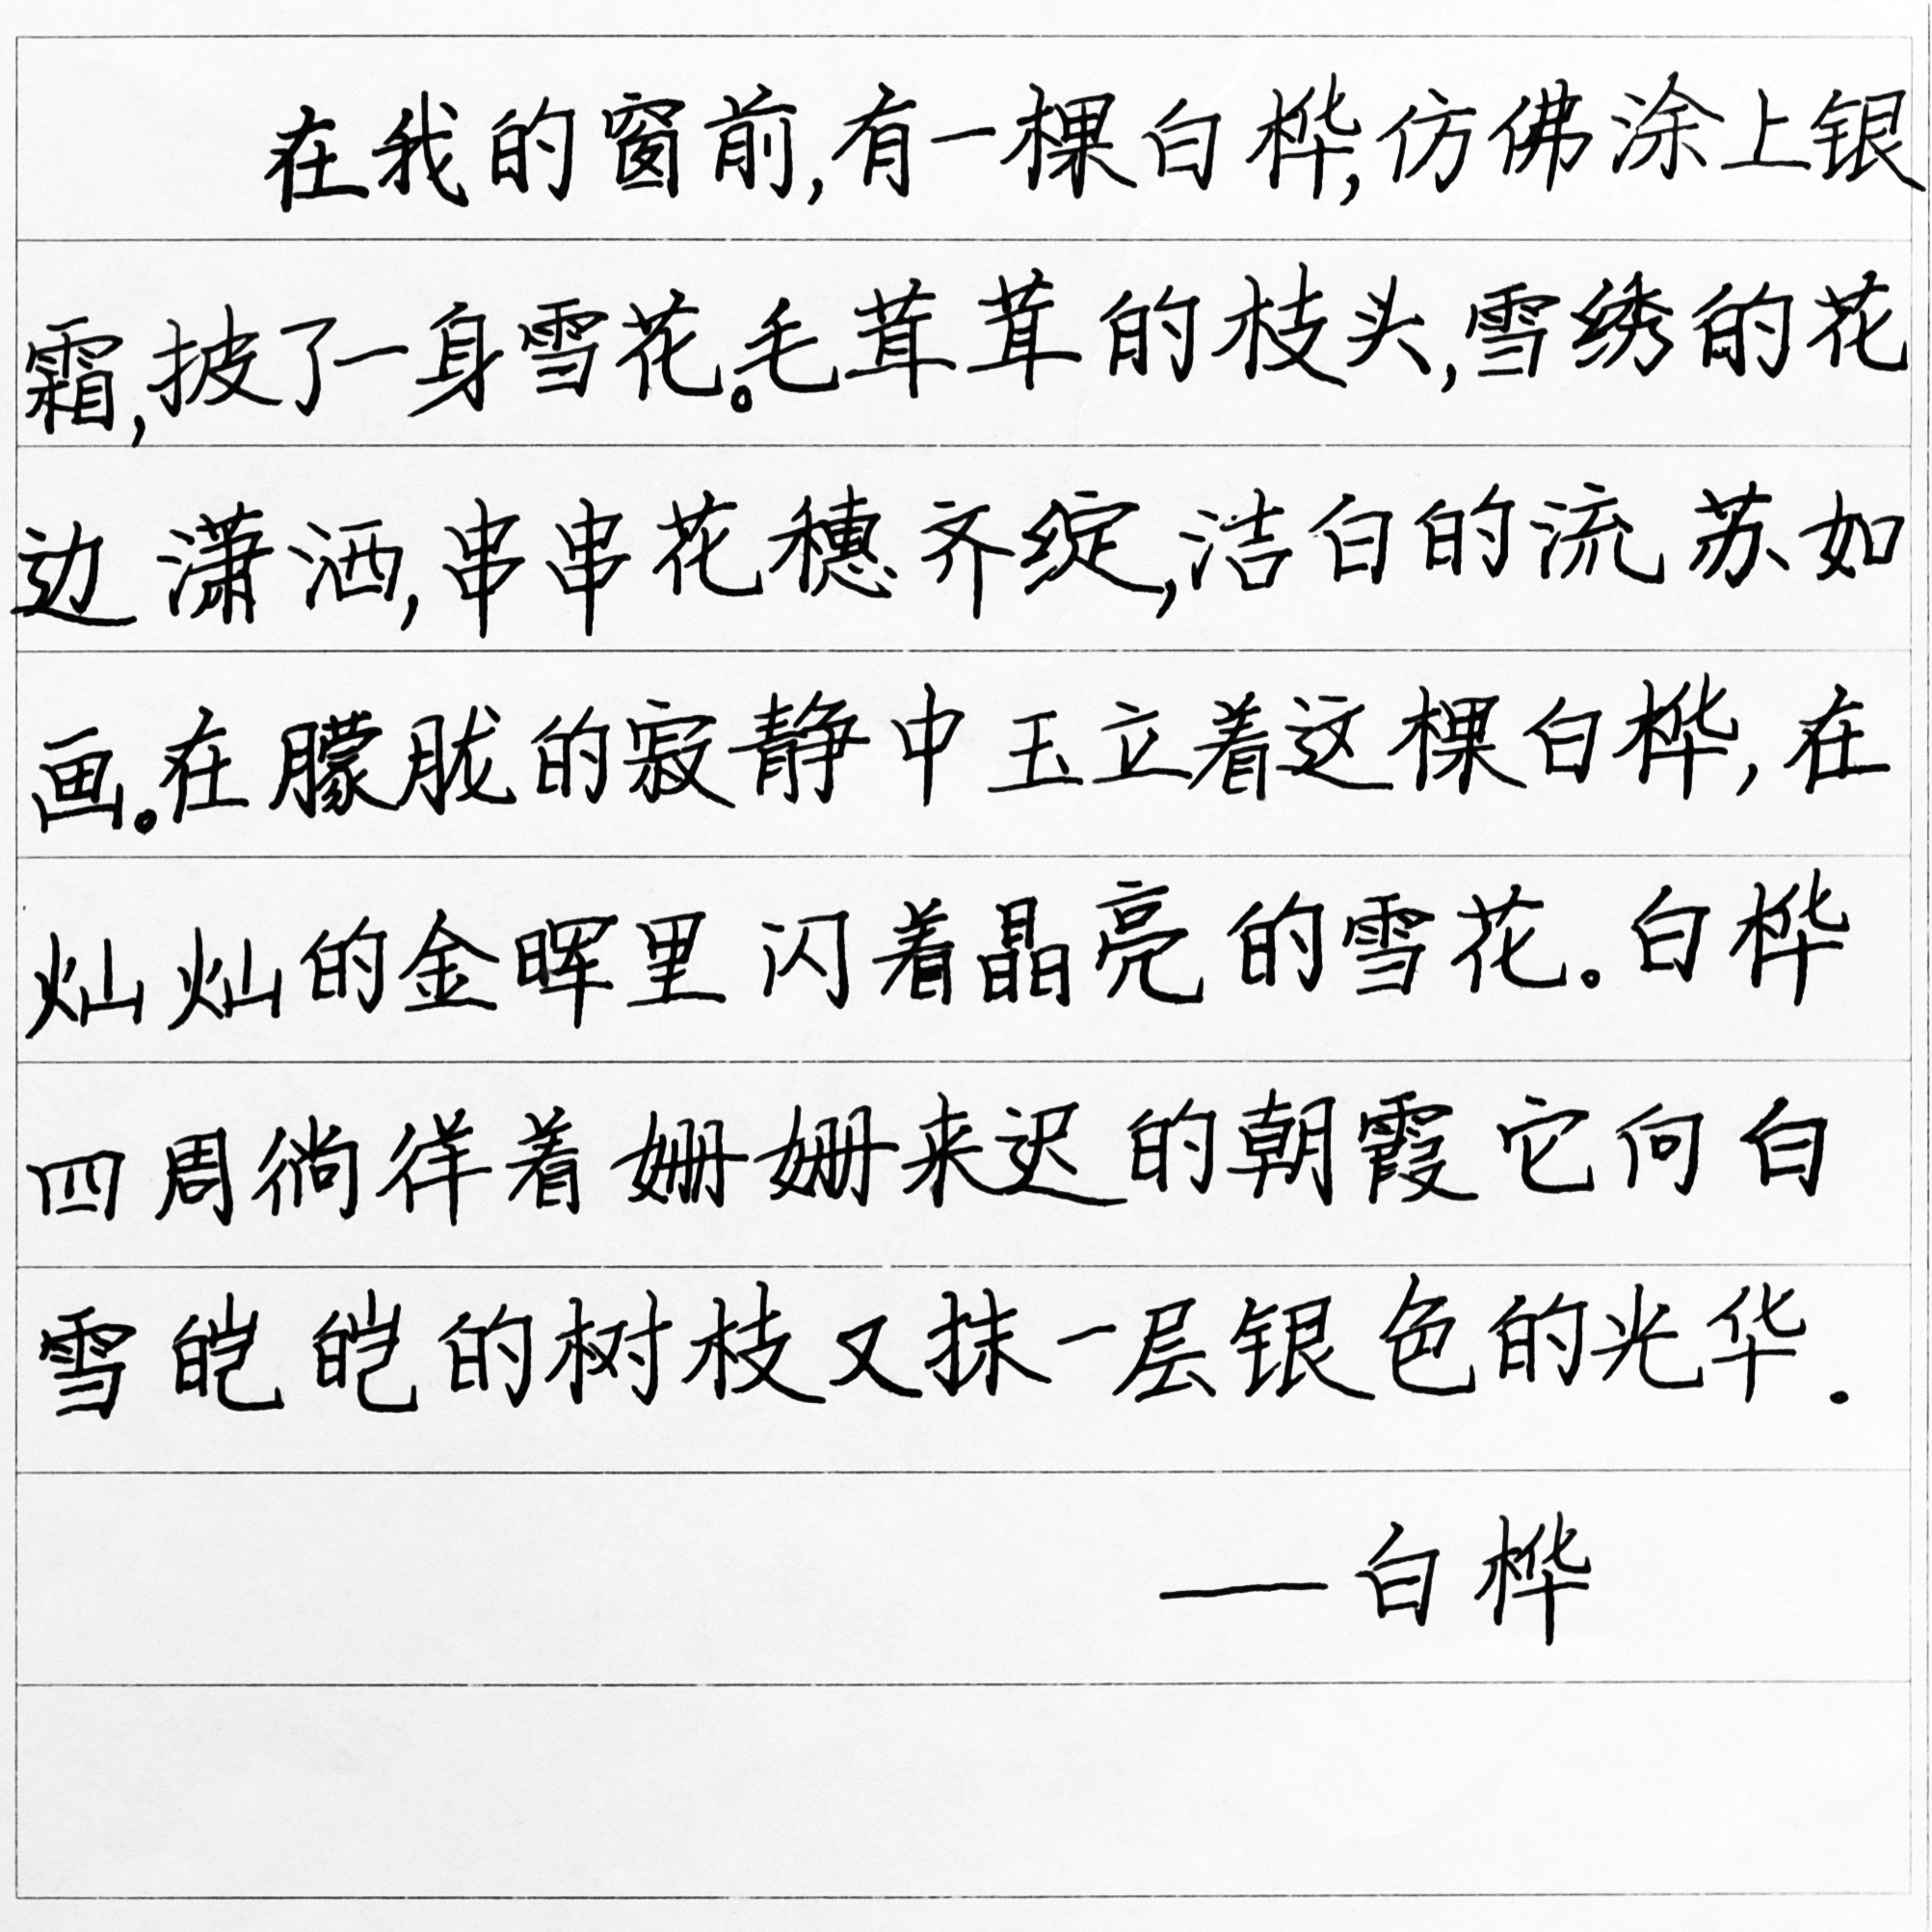 在我的窗前,有一棵白桦,仿佛涂上银
霜,披了一身雪花。毛茸茸的枝头,雪绣的花
边潇洒,串串花穗齐绽,洁白的流苏如
画。在朦胧的寂静中玉立着这棵白桦,在
灿灿的金晖里闪着晶亮的雪花。白桦
四周徜徉着姗姗来迟的朝霞它向白
雪皑皑的树枝又抹一层银色的光华.
——白桦